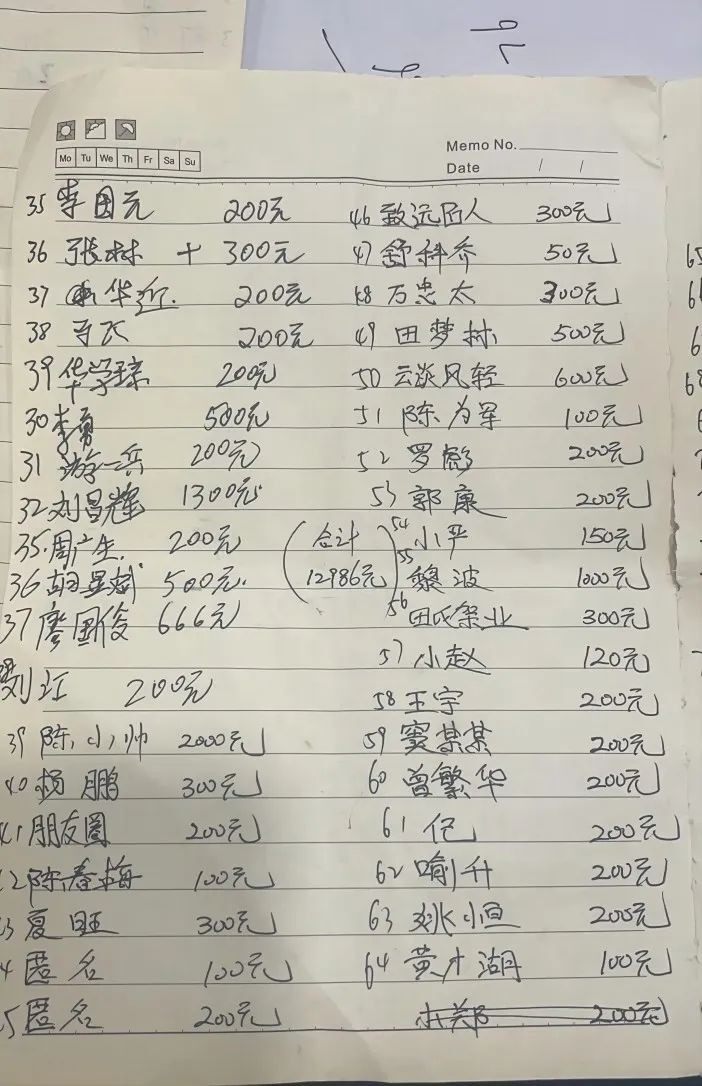 Memo No.
Mo Tu We Th Fr Sa Su
Date / /
35 李国元 200元
36 张林 + 300元
37 华近. 200元
38 200元
39 华学琼 200元
30 李勇 500元
31 游一兵 200元
32 刘昌辉 1300元
35.周广生. 200元
36 胡显斌 500元.
37 廖国俊 666元
刘江 200元
39 陈小帅 2000元
40 杨鹏 300元
41 朋友圈 200元
2 陈春梅 100元
3 夏旺 300元
4 匿名 100元
5 匿名 200元
(合计
12986元)
46 致远后人 300元
47 舒科乔 50元
48 万忠太 300元
49 田梦林 500元
50 云淡风轻 600元
51 陈为军 100元
52 罗彪 200元
53 郭康 200元
54 小严 150元
55 黎波 1000元
56 田氏伞业 300元
57 小赵 120元
58 王宇 200元
59 窦某某 200元
60 曾繁华 200元
61 亿 200元
62 喻升 200元
63 姚小恒 200元
64 黄才湖 100元
郑 200元